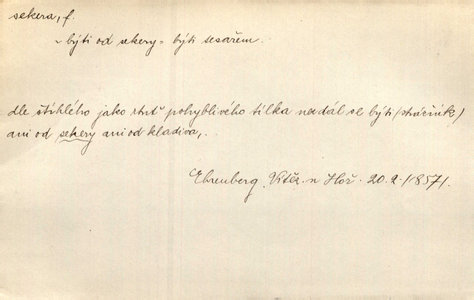 sekera, f.
"býti od sekery" býti tesařem.
dle štíhlého jako chrt pohyblivého tílka nedál se býti (strážník)
ani od sekery ani od kladiva,.
Ehrenberg, n Hoř. 20.2./1857/.